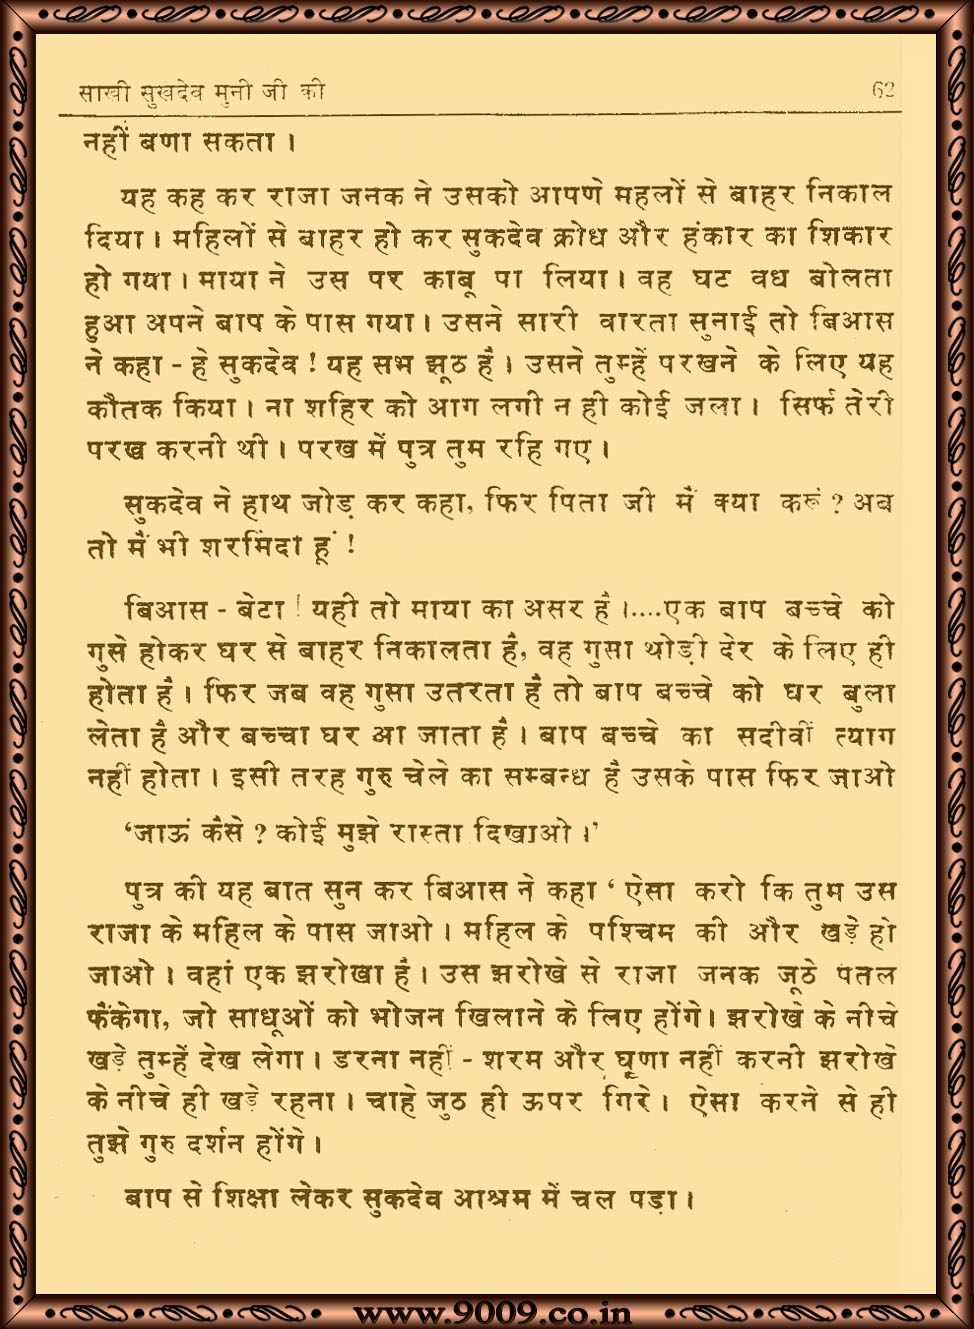 साखी सुखदेव मुनी जी की 62
नहीं बणा सकता ।
यह कह कर राजा जनक ने उसको आपणे महलों से बाहर निकाल
दिया । महिलों से बाहर हो कर सुकदेव क्रोध और हंकार का शिकार
हो गया । माया ने उस पर काबू पा लिया । वह घट वध बोलता
हुआ अपने बाप के पास गया । उसने सारी वारता सुनाई तो बिआस
ने कहा - हे सुकदेव ! यह सभ झूठ है । उसने तुम्हें परखने के लिए यह
कौतक किया । ना शहिर को आग लगी न ही कोई जला । सिर्फ तेरी
परख करनी थी । परख में पुत्र तुम रहि गए ।
सुकदेव ने हाथ जोड़ कर कहा, फिर पिता जी मैं क्या करूं ? अब
तो मैं भी शरमिंदा हूं !
बिआस - बेटा ! यही तो माया का असर है ।....एक बाप बच्चे को
गुसे होकर घर से बाहर निकालता है, वह गुसा थोड़ी देर के लिए ही
होता है । फिर जब वह गुसा उतरता है तो बाप बच्चे को घर बुला
लेता है और बच्चा घर आ जाता है । बाप बच्चे का सदीवीं त्याग
नहीं होता । इसी तरह गुरु चेले का सम्बन्ध है उसके पास फिर जाओ
‘जाऊं कैसे ? कोई मुझे रास्ता दिखाओ ।’
पुत्र की यह बात सुन कर बिआस ने कहा ‘ ऐसा करो कि तुम उस
राजा के महिल के पास जाओ । महिल के पश्चिम की और खड़े हो
जाओ । वहां एक झरोखा है । उस झरोखे से राजा जनक जूठे पतल
फैंकेगा, जो साधूओं को भोजन खिलाने के लिए होंगे । झरोखे के नीचे
खड़े तुम्हें देख लेगा । डरना नहीं - शरम और घृणा नहीं करनी झरोखे
के नीचे ही खड़े रहना । चाहे जुठ ही ऊपर गिरे । ऐसा करने से ही
तुझे गुरु दर्शन होंगे ।
बाप से शिक्षा लेकर सुकदेव आश्रम में चल पड़ा ।
www.9009.co.in